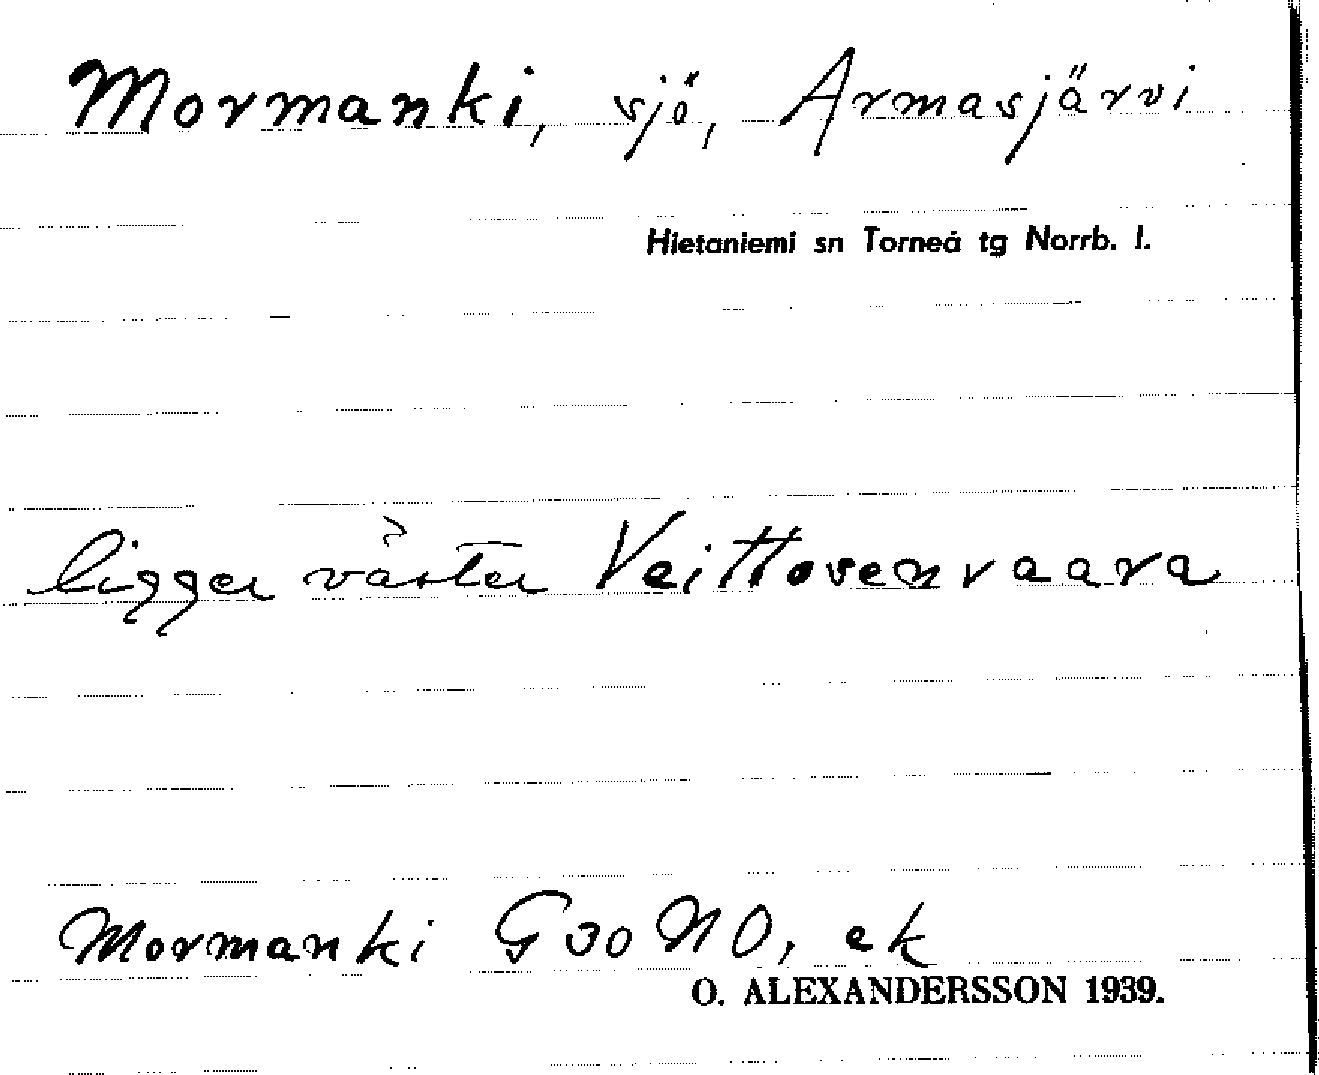 Mormanki, sjö, Armasjärvi
Hietaniemi sn Torneå tg Norrb. l.
ligger väster Veittosenvaara
Mormanki G30NO, ek
O. ALEXANDERSSON 1939.